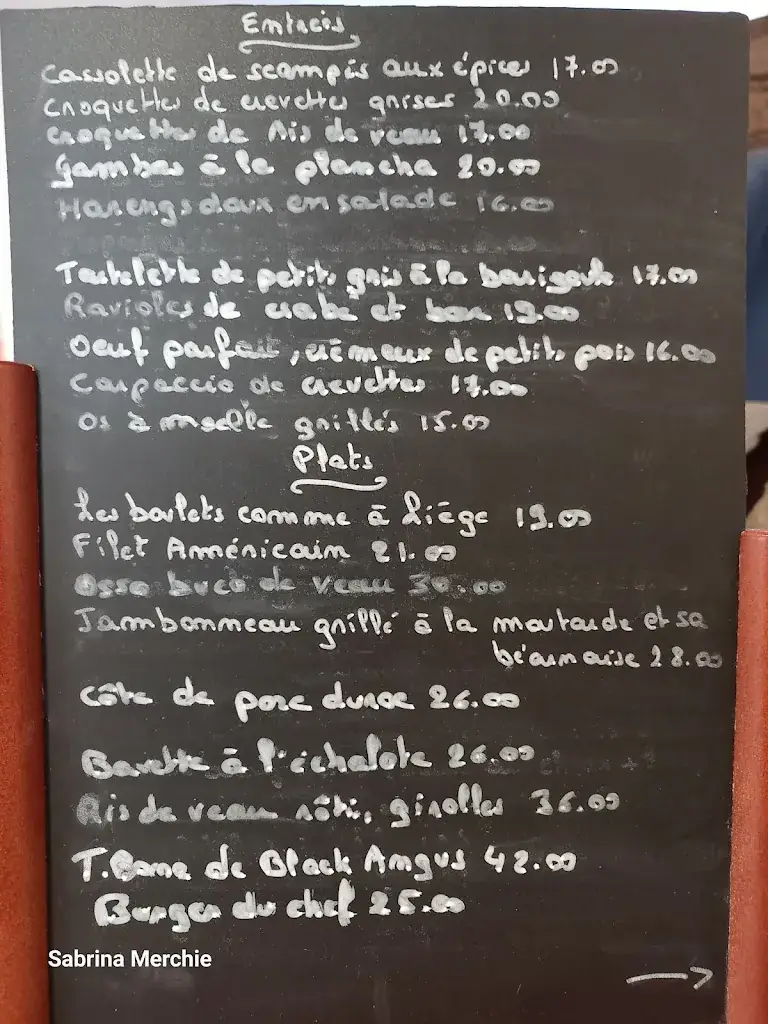 Entrées
Cassolette de scampis aux épices 17.00
Croquettes de crevettes grises 20.00
Croquettes de Ris de veau 17.00
Gambas à la plancha 20.00
Harengs doux en salade 16.00
Tartelette de petits gris à la barigoule 17.00
Ravioles de crabe et bar 19.00
Oeuf parfait, crémeux de petits pois 16.00
Carpaccio de crevettes 17.00
Os à moelle grillés 15.00
Plats
Les boulets comme à Liège 19.00
Filet Américain 21.00
Osso buco de veau 30.00
Jambonneau grillé à la moutarde et sa
béarnaise 28.00
Côte de porc duroc 26.00
Bavette à l'échalote 26.00
Ris de veau rôti, girolles 36.00
T.Bone de Black Angus 42.00
Burger du chef 25.00
Sabrina Merchie